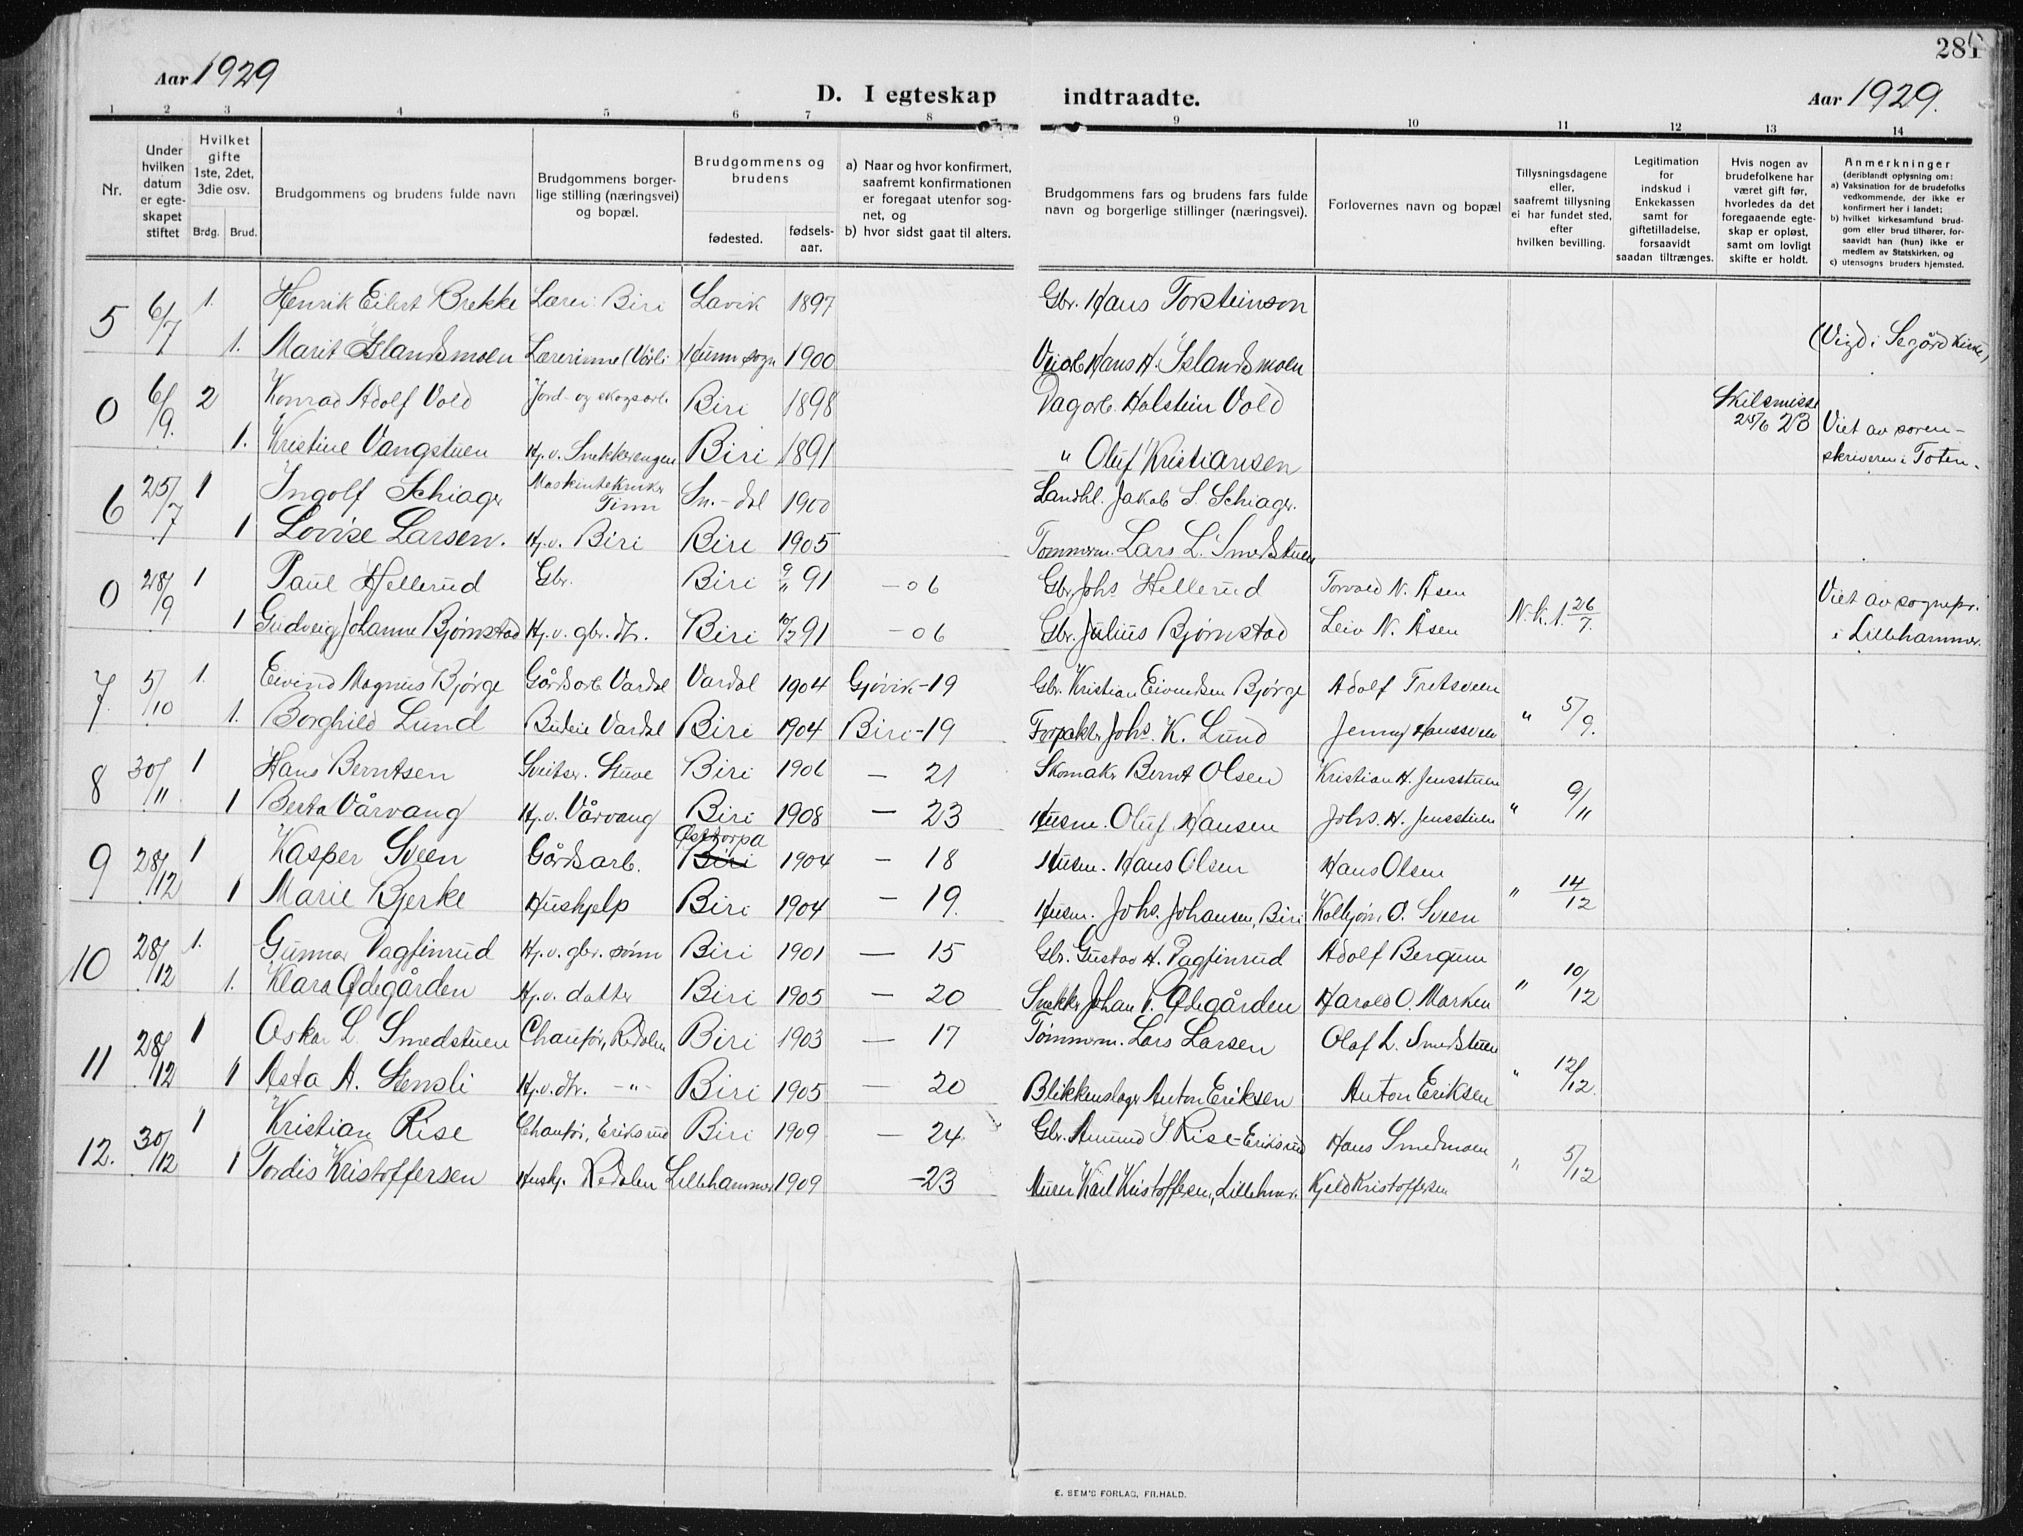 281
Aar 1929
D. I egteskap indtraadte.
Aar 1929.
1 2 3 4 5 6 7 8 9 10 11 12 13 14
Nr.
Under hvilken datum er egteskapet stiftet
Hvilket gifte 1ste, 2det, 3die osv.
Brdg. Brud.
Brudgommens og brudens fulde navn
Brudgommens borgerlige stilling (næringsvei) og bopæl.
Brudgommens og brudens
fødested. fødselsaar.
a) Naar og hvor konfirmert, saafremt konfirmationen er foregaat utenfor sognet, og
b) hvor sidst gaat til alters.
Brudgommens fars og brudens fars fulde navn og borgerlige stillinger (næringsvei).
Forlovernes navn og bopæl
Tillysningsdagene eller, saafremt tillysning ei har fundet sted, efter hvilken bevilling.
Legitimation for indskud i Enkekassen samt for giftetilladelse, forsaavidt saadan tiltrænges.
Hvis nogen av brudefolkene har været gift før, hvorledes da det foregaaende egteskap er opløst, samt om lovligt skifte er holdt.
Anmerkninger (deriblandt oplysning om:
a) Vaksination for de brudefolks vedkommende, der ikke er konfirmert her i landet;
b) hvilket kirkesamfund brudgom eller brud tilhører, forsaavidt han (hun) ikke er medlem av Statskirken, og
c) utensogns bruders hjemsted.
5 6/7 1. Henrik Eilert Brekke Lærer Biri Lavik 1897 Gbr. Hans Torsteinson
1. Marit Islandsmoen Lærerinne (Vårli Hunn sogn 1900 Veiarb Hans H. Islandsmoen (Vigd i Segård Kirke)
0 6/9. 2 Konrad Adolf Vold Jord- og skogsarb. Biri 1898 Dagarb. Halstein Vold Skilsmisse 25/6 23
1. Kristine Vangstuen Hj.v. Snekkerengen Biri 1891 " Oluf Kristiansen Viet av sorenskriveren i Toten.
6 25/7 1 Ingolf Schiager Maskintekniker Tinn Sn.-dal 1900 Landhl. Jakob S. Schiager.
1 Lovise Larsen. Hj.v. Biri Biri 1905 Tømmerm. Lars L. Smedstuen
0 28/9 1 Paul Hellerud Gbr. Biri 9/11 91 - 06 Gbr Johs Hellerud Torvald N. Åsen
1 Gudveig Johanne Bjørnstad Hj.v. gbr. dtr. Biri 10/7 91 - 06 Gbr. Julius Bjørnstad Leiv N. Åsen N.k.1. 26/7. Viet av sognepr. i Lillehammer.
7 5/10 1. Eivind Magnus Bjørge Gårdsarb Vardal Vardal 1904 Gjøvik - 19 Gbr. Kristian Eivendsen Bjørge Adolf Tretsveen
1. Borghild Lund Budeie Vardal Biri 1904 Biri - 19 Forpakter Johs. K. Lund Jenny Hanssveen " 5/9.
8 30/11 1 Hans Berntsen Sveitser. Stuve Biri 1906 - 21 Skomaker Bernt Olsen Kristian H. Jensstuen
1 Berta Vårvang Hj.v. Vårvang Biri 1908 - 23 Husm. Oluf Hansen Johs. H. Jensstuen " 9/11
9 28/12 1 Kasper Sveen Gårdsarb. Østtorpa Biri 1904 - 18 Husm. Hans Olsen Hans Olsen
1 Marie Bjerke Hushjelp Biri 1904 - 19. Husm. Johs. Johansen, Biri Kolbjørn O. Sveen " 14/12
10 28/12 1. Gunnar Dagfinrud Hj.v. gbr. sønn Biri 1901 - 15 Gbr. Gustav H. Dagfinrud Adolf Bergum
1. Klara Ødegården Hj.v. datter Biri 1905 - 20 Snekker Johan P. Ødegården Harald O. Marken " 10/12
11 28/12 1 Oskar L. Smedstuen Chaufør, Redalen Biri 1903 - 17 Tømmerm. Lars Larsen Olaf L. Smedstuen
1 Asta A. Stensli Hj.v. dtr. -"- Biri 1905 - 20 Blikkenslager Anton Eriksen Anton Eriksen " 12/12
12. 30/12 1 Kristian Rise Chaufør, Eriksrud Biri 1909 - 24 Gbr. Amund I Rise - Eriksrud Hans Smedmoen
1 Tordis Kristoffersen Hushj. Redalen Lillehammer 1909 - 23 Murer Karl Kristoffersen, Lillehmr. Kjeld Kristoffersen " 5/12
E. SEM'S FORLAG, FR.HALD.